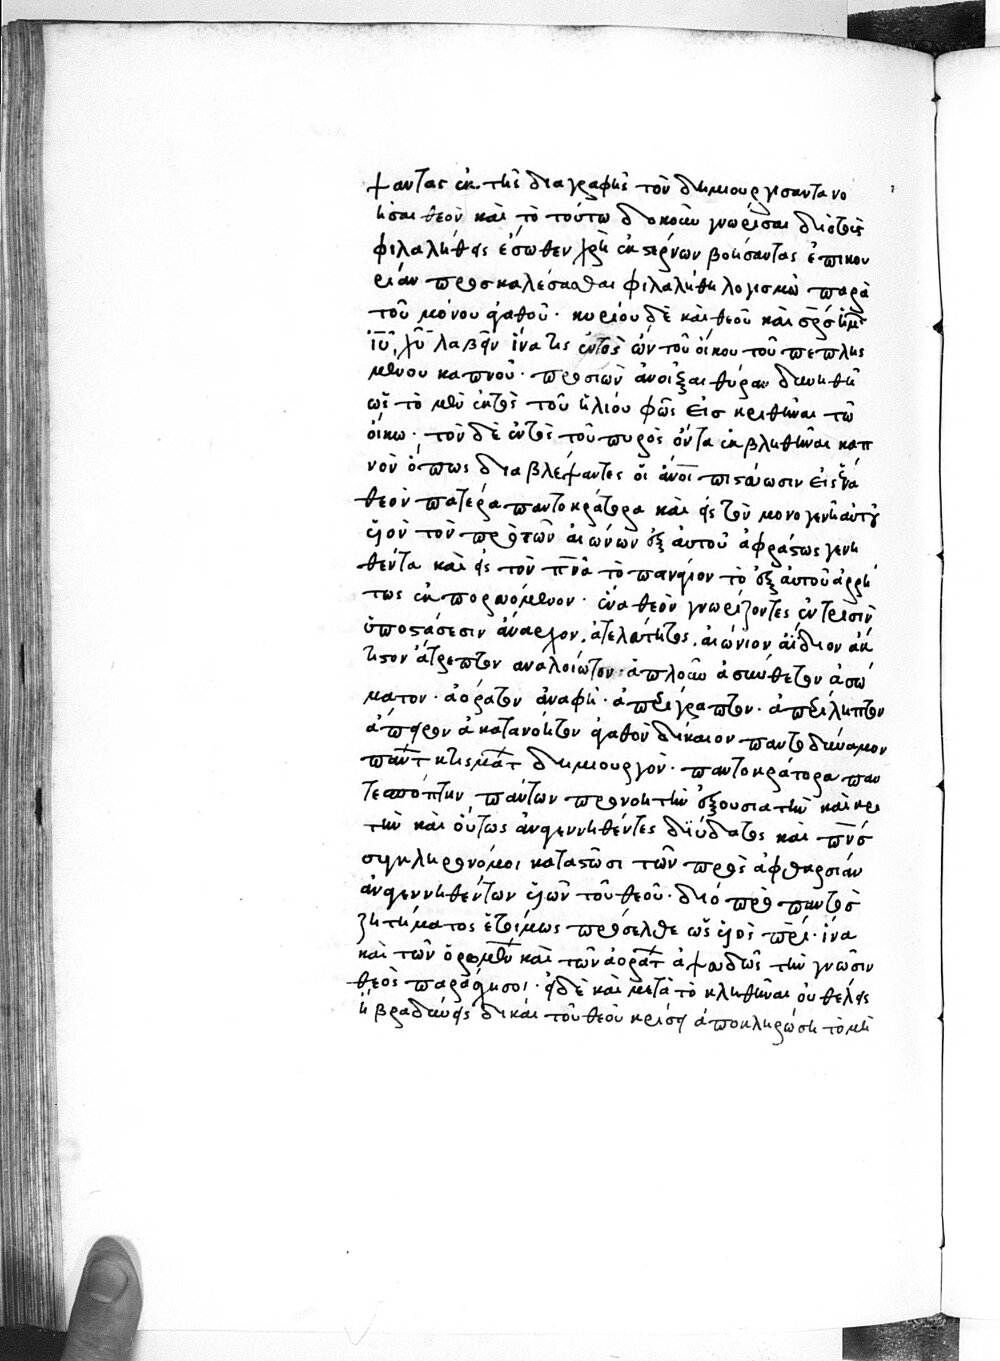 ψαντας ἐκ τῆς διαγραφῆς τὸν δημιουργίσαντα νο
ῆσαι θεὸν καὶ τὸ τούτω δοκοῦν γνωρίσαι
φιλαλήθεις ἔσωθεν χρὴ ἐκ στέρνων βοήσαντας ἐπικου
ρίαν προσκαλέσασθαι φιλαλήθη λογισμῶ παρὰ
τοῦ μόνου ἀγαθοῦ· κυρίου δὲ καὶ θεοῦ καὶ σρ̅σ ἡμ
ιῦ χῦ λαβεῖν ἵνα τις ἐντὸς ὢν τοῦ οἴκου τοῦ πεπλης
μένου καπνοῦ· προσιὼν ἀνοῖξαι θύραν δυνηθῆ
ὡς τὸ μὲν ἐκτὸς τοῦ ἡλίου φῶς εἰσκριθῆναι τῶ
οἴκω· τὸν δὲ ἐντὸς τοῦ πυρὸς ὄντα ἐκβληθῆναι καπ
νὸν ὅπως διαβλέψαντες οἱ ἄνοι πιστεύωσιν εἰς ἕνα
θεὸν πατέρα παντοκράτορα καὶ εἰς τὸν μονογενῆ αὐτοῦ
υἱὸν τὸν πρὸ τῶν αἰώνων ἐξ αὐτοῦ ἀφράστως γενη
θέντα καὶ εἰς τὸν πνα τὸ παναγιον τὸ ἐξ αὐτοῦ ἀρρή
τως ἐκπορευόμενον· ἕνα θεὸν γνωρίζοντες ἐν τρισὶν
ὑποστάσεσιν ἄναρχον, ἀτελεύτητος, αἰώνιον ἀΐδιον ἄκ
τιστον ἄτρεπτον αναλοιώτον· ἁπλοῦν ἀσυνθετον ἀσώ
ματον· ἀόρατον ἀναφῆ· ἀπερίγραπτον· ἀπερίληπτον
ἄπειρον ἀκατανόητον ἀγαθὸν δίκαιον παντοδύναμον
παντ κτισματ δημιουργὸν· παντοκράτορα παν
τεπόπτην πάντων προνοητὴν ἐξουσιατὴν καὶ κρι
τὴν καὶ οὕτως ἀναγεννηθέντες δι ὕδατος καὶ πνσ
συγκληρονόμοι καταστῶσι τῶν πρὸς ἀφθαρσίαν
ἀναγεννηθέντων υἱῶν τοῦ θεοῦ· διὸ πρὸ παντὸς
ζητήματος ἑτοίμως πρόσελθε ὡς υἱὸς πρι· ἵνα
καὶ τῶν ὁρομεν καὶ τῶν ἀορατ ἀψευδῶς τὴν γνῶσιν
θεὸς παράσχησοι· εἰ δὲ καὶ μετὰ τὸ κληθῆναι οὐ θέλεις
ἢ βραδύνεις δικαι τοῦ θεου κρίσει ἀποκληρώση τὸ μὴ